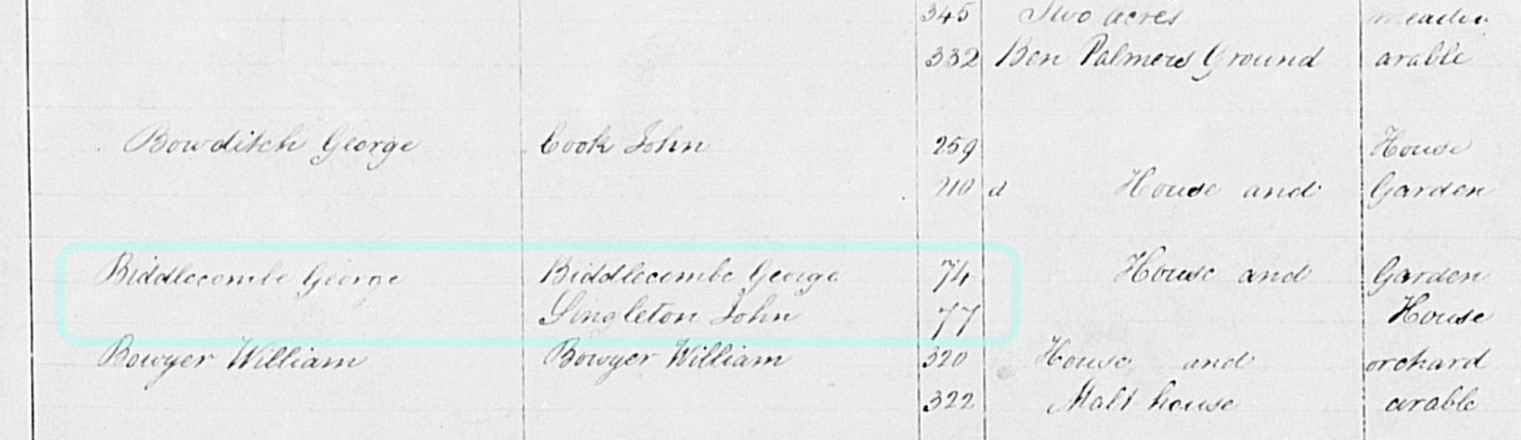 345 Two acres meadow
332 Ben Palmers Ground arable
Bowditch George Cook John 259 House
210 a House and Garden
Biddlecombe George Biddlecombe George 74 House and Garden
Singleton John 77 House
Bowyer William Bowyer William 320 House and orchard
322 Malt house arable